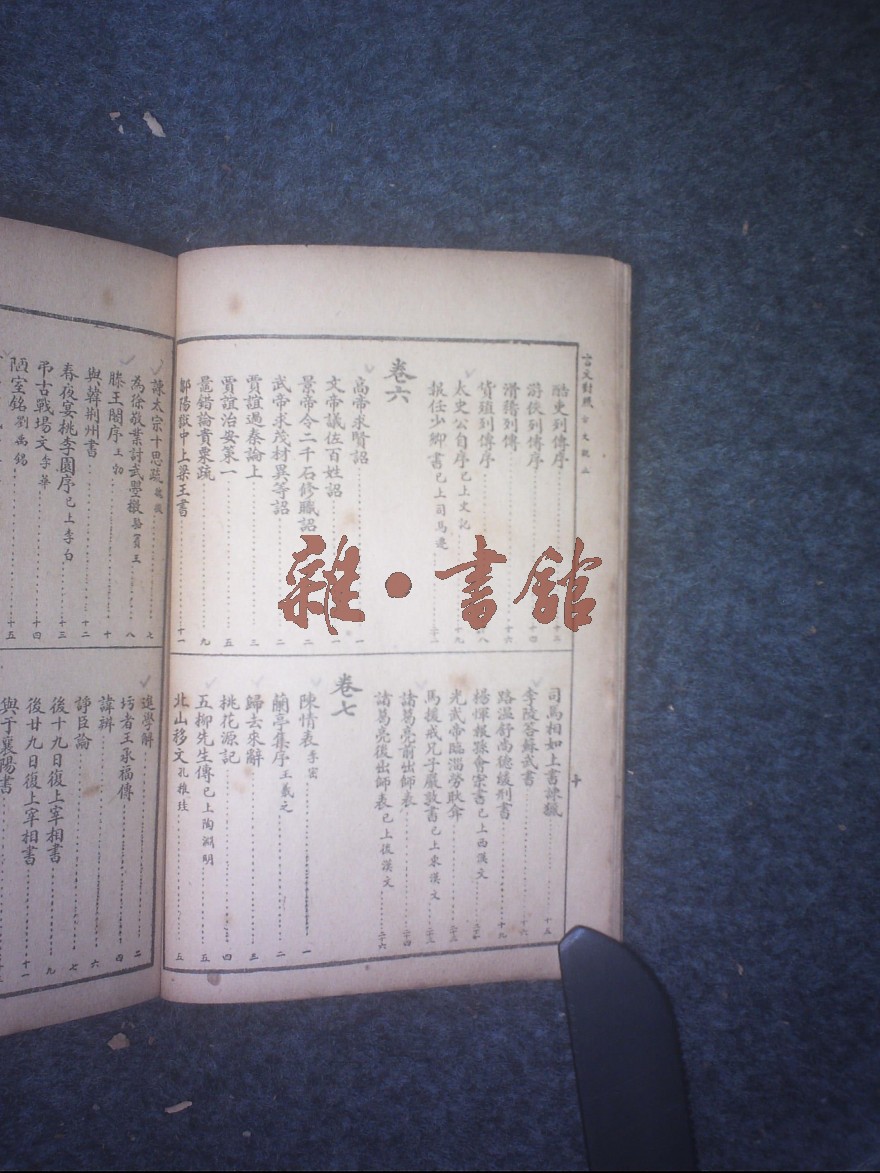 言文對照
酷吏列傳序
游俠列傳序
滑稽列傳 十六
貨殖列傳序 十八
太史公自序 已上史記 十九
報任少卿書 已上司馬遷
卷六
高帝求賢詔 一
文帝議佐百姓詔 一
景帝令二千石修職詔 二
武帝求茂材異等詔 二
賈誼過秦論上 三
賈誼治安策一 五
鼂錯論貴粟疏 九
鄒陽獄中上梁王書 十一
司馬相如上書諫獵 十五
李陵答蘇武書 十六
路溫舒尚德緩刑書 十九
楊惲報孫會宗書 已上西漢文
光武帝臨淄勞耿弇
馬援戒兄子嚴敦書 已上東漢文
諸葛亮前出師表
諸葛亮後出師表 已上後漢文
卷七
陳情表 李密 一
蘭亭集序 王羲之 二
歸去來辭 三
桃花源記 四
五柳先生傳 已上陶淵明 五
北山移文 孔稚珪 五
十
諫太宗十思疏 魏徵 七
為徐敬業討武曌檄 駱賓王 八
滕王閣序 王勃 十
與韓荊州書 十二
春夜宴桃李園序 已上李白 十三
弔古戰場文 李華 十四
陋室銘 劉禹錫 十五
進學解 二
圬者王承福傳 四
諱辨 六
諍臣論 七
後十九日復上宰相書 九
後廿九日復上宰相書 十一
與于襄陽書
雜·書館